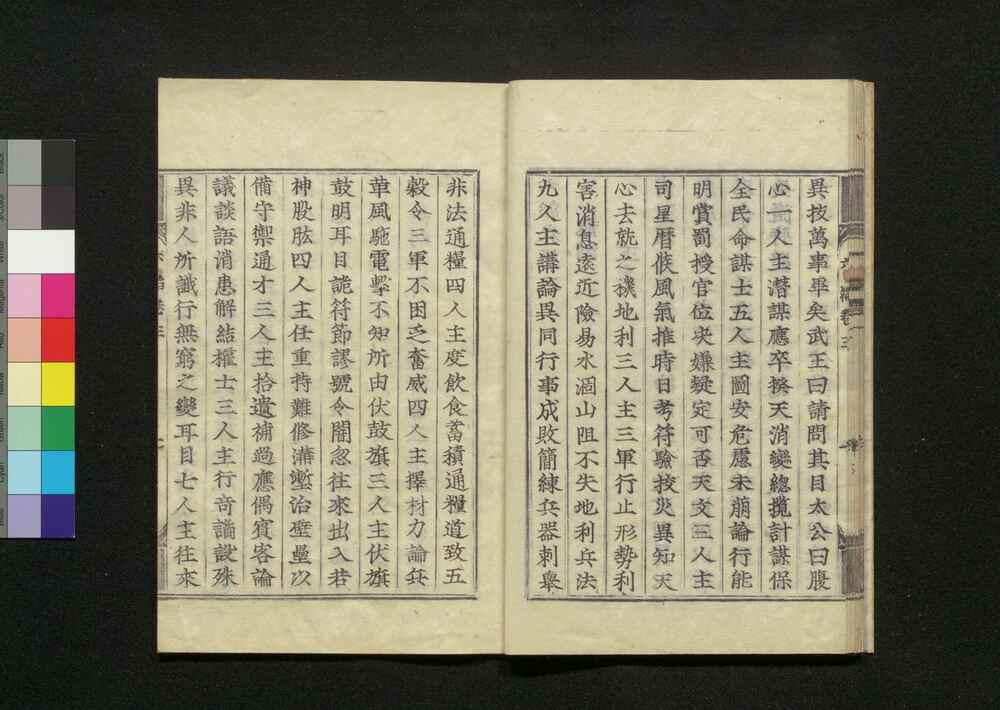 異技萬事畢矣武王曰請問其目太公曰腹
心一人主潛謀應卒揆天消變緫攬計謀保
全民命謀士五人主圖安危慮未萌論行能
明賞罰授官位决嫌疑定可否天文三人主
司星曆候風氣推時日考符驗挍災異知天
心去就之機地利三人主三軍行止形勢利
害消息遠近險易水涸山阻不失地利兵法
九人主講論異同行事成敗簡練兵器刺擧
非法通糧四人主度飮食蓄積通糧道致五
糓令三軍不困乏奮威四人主擇材力論兵
革風馳電擊不知所由伏鼓旗三人主伏旗
鼓明耳目詭符節謬號令闇忽往來出入若
神股肱四人主任重持難修溝塹治壁壘以
備守禦通才三人主拾遺補過應偶賓客論
議談語消患解結權士三人主行奇譎設殊
異非人所識行無窮之變耳目七人主往來